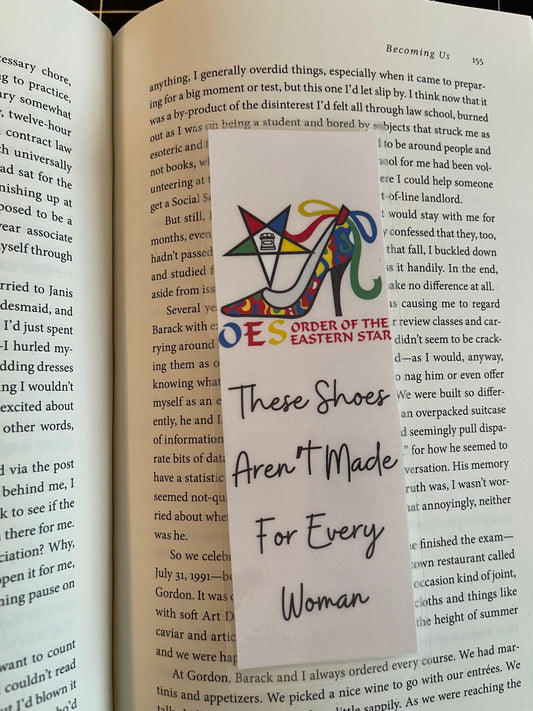 cessary chore,
ng to practice,
ary somewhat
, twelve-hour
contract law
ch universally
ad sat for the
nishing up at
posed to be a
year associate
myself through
rried to Janis
desmaid, and
I'd just spent
—I hurled my-
dding dresses
ing I wouldn't
excited about
other words,
d via the post
behind me, I
k to see if the
there for me.
ciation? Why,
open it for me,
ning pause on
want to count
couldn't read
but I'd blown it
Becoming Us 155
anything, I generally overdid things, especially when it came to prepar-
ing for a big moment or test, but this one I'd let slip by. I think now that it
was a by-product of the disinterest I'd felt all through law school, burned
out as I was on being a student and bored by subjects that struck me as
esoteric and to be around people and
not books, w ool for me had been vol-
unteering at ere I could help someone
get a Social Se t-of-line landlord.
But still, would stay with me for
months, even y confessed that they, too,
hadn't passed that fall, I buckled down
and studied f ss it handily. In the end,
aside from iss ake no difference at all.
Several ye as causing me to regard
Barack with e r review classes and car-
rying around didn't seem to be crack-
ing them as o d—as I would, anyway,
knowing what o nag him or even offer
myself as an e We were built so differ-
ently, he and I an overpacked suitcase
of information d seemingly pull dispa-
rate bits of data " for how he seemed to
have a statistic versation. His memory
seemed not-qu ruth was, I wasn't wor-
ried about whe hat annoyingly, neither
was he.
So we celeb e finished the exam—
July 31, 1991—b town restaurant called
Gordon. It was occasion kind of joint,
with soft Art D cloths and things like
caviar and artic the height of summer
and we were hap
At Gordon, Barack and I always ordered every course. We had mar-
tinis and appetizers. We picked a nice wine to go with our entrées. We
little sappily. As we were reaching the
OES ORDER OF THE
EASTERN STAR
These Shoes
Aren't Made
For Every
Woman